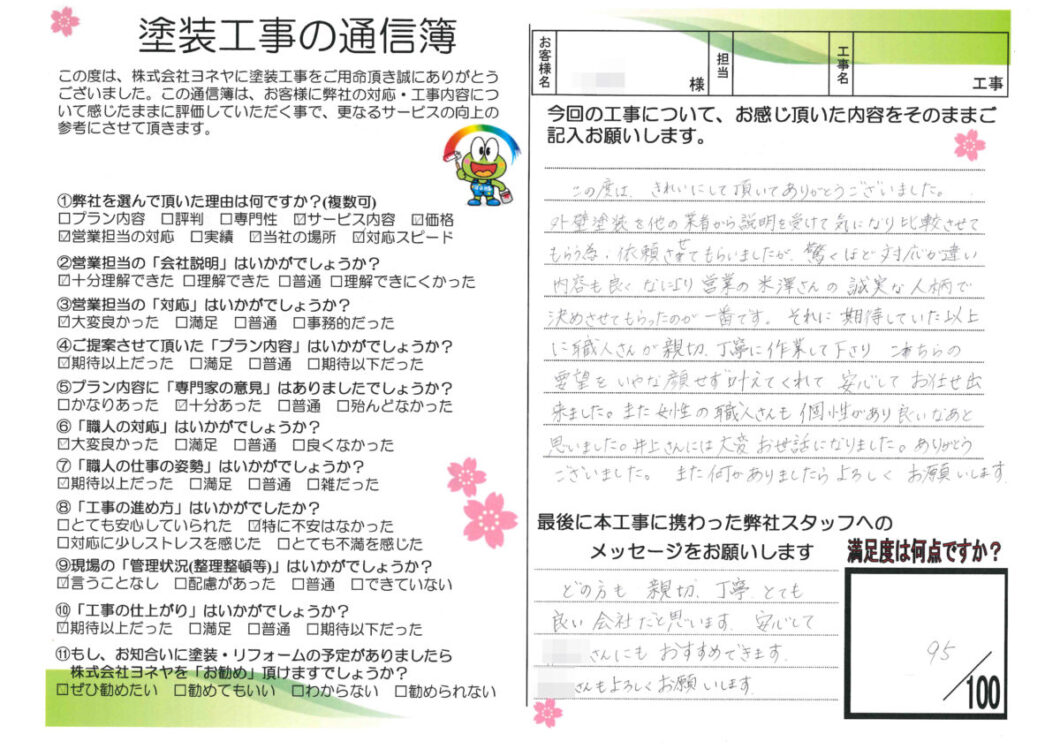 塗装工事の通信簿
この度は、株式会社ヨネヤに塗装工事をご用命頂き誠にありがとう
ございました。この通信簿は、お客様に弊社の対応・工事内容につ
いて感じたままに評価していただく事で、更なるサービスの向上の
参考にさせて頂きます。
①弊社を選んで頂いた理由は何ですか?(複数可)
☐プラン内容 ☐評判 ☐専門性 ☑サービス内容 ☑価格
☑営業担当の対応 ☐実績 ☑当社の場所 ☑対応スピード
②営業担当の「会社説明」はいかがでしょうか?
☑十分理解できた ☐理解できた ☐普通 ☐理解できにくかった
③営業担当の「対応」はいかがでしょうか?
☑大変良かった ☐満足 ☐普通 ☐事務的だった
④ご提案させて頂いた「プラン内容」はいかがでしょうか?
☑期待以上だった ☐満足 ☐普通 ☐期待以下だった
⑤プラン内容に「専門家の意見」はありましたでしょうか?
☐かなりあった ☑十分あった ☐普通 ☐殆んどなかった
⑥「職人の対応」はいかがでしょうか?
☑大変良かった ☐満足 ☐普通 ☐良くなかった
⑦「職人の仕事の姿勢」はいかがでしょうか?
☑期待以上だった ☐満足 ☐普通 ☐雑だった
⑧「工事の進め方」はいかがでしたか?
☐とても安心していられた ☑特に不安はなかった
☐対応に少しストレスを感じた ☐とても不満を感じた
⑨現場の「管理状況(整理整頓等)」はいかがでしょうか?
☑言うことなし ☐配慮があった ☐普通 ☐できていない
⑩「工事の仕上がり」はいかがでしょうか?
☑期待以上だった ☐満足 ☐普通 ☐期待以下だった
⑪もし、お知合いに塗装・リフォームの予定がありましたら
株式会社ヨネヤを「お勧め」頂けますでしょうか?
☐ぜひ勧めたい ☐勧めてもいい ☐わからない ☐勧められない
お客様名 様 担当 工事名 工事
今回の工事について、お感じ頂いた内容をそのままご
記入お願いします。
この度は、きれいにして頂いてありがとうございました。
外壁塗装を他の業者から説明を受けて気になり比較させて
もらう為、依頼させてもらいましたが、驚くほど対応が違い
内容も良く なにより 営業の米澤さんの誠実な人柄で
決めさせてもらったのが一番です。それに期待していた以上
に職人さんが親切、丁寧に作業して下さり こちらの
要望をいやな顔せず叶えてくれて 安心して お任せ出
来ました。また女性の職人さんも個性があり良いなあと
思いました。井上さんには大変お世話になりました。ありがとう
ございました。 また何かありましたらよろしく お願いします
最後に本工事に携わった弊社スタッフへの
メッセージをお願いします
どの方も 親切、丁寧 とても
良い会社だと思います。安心して
さんにも おすすめできます。
さんもよろしくお願いします。
満足度は何点ですか?
95/100